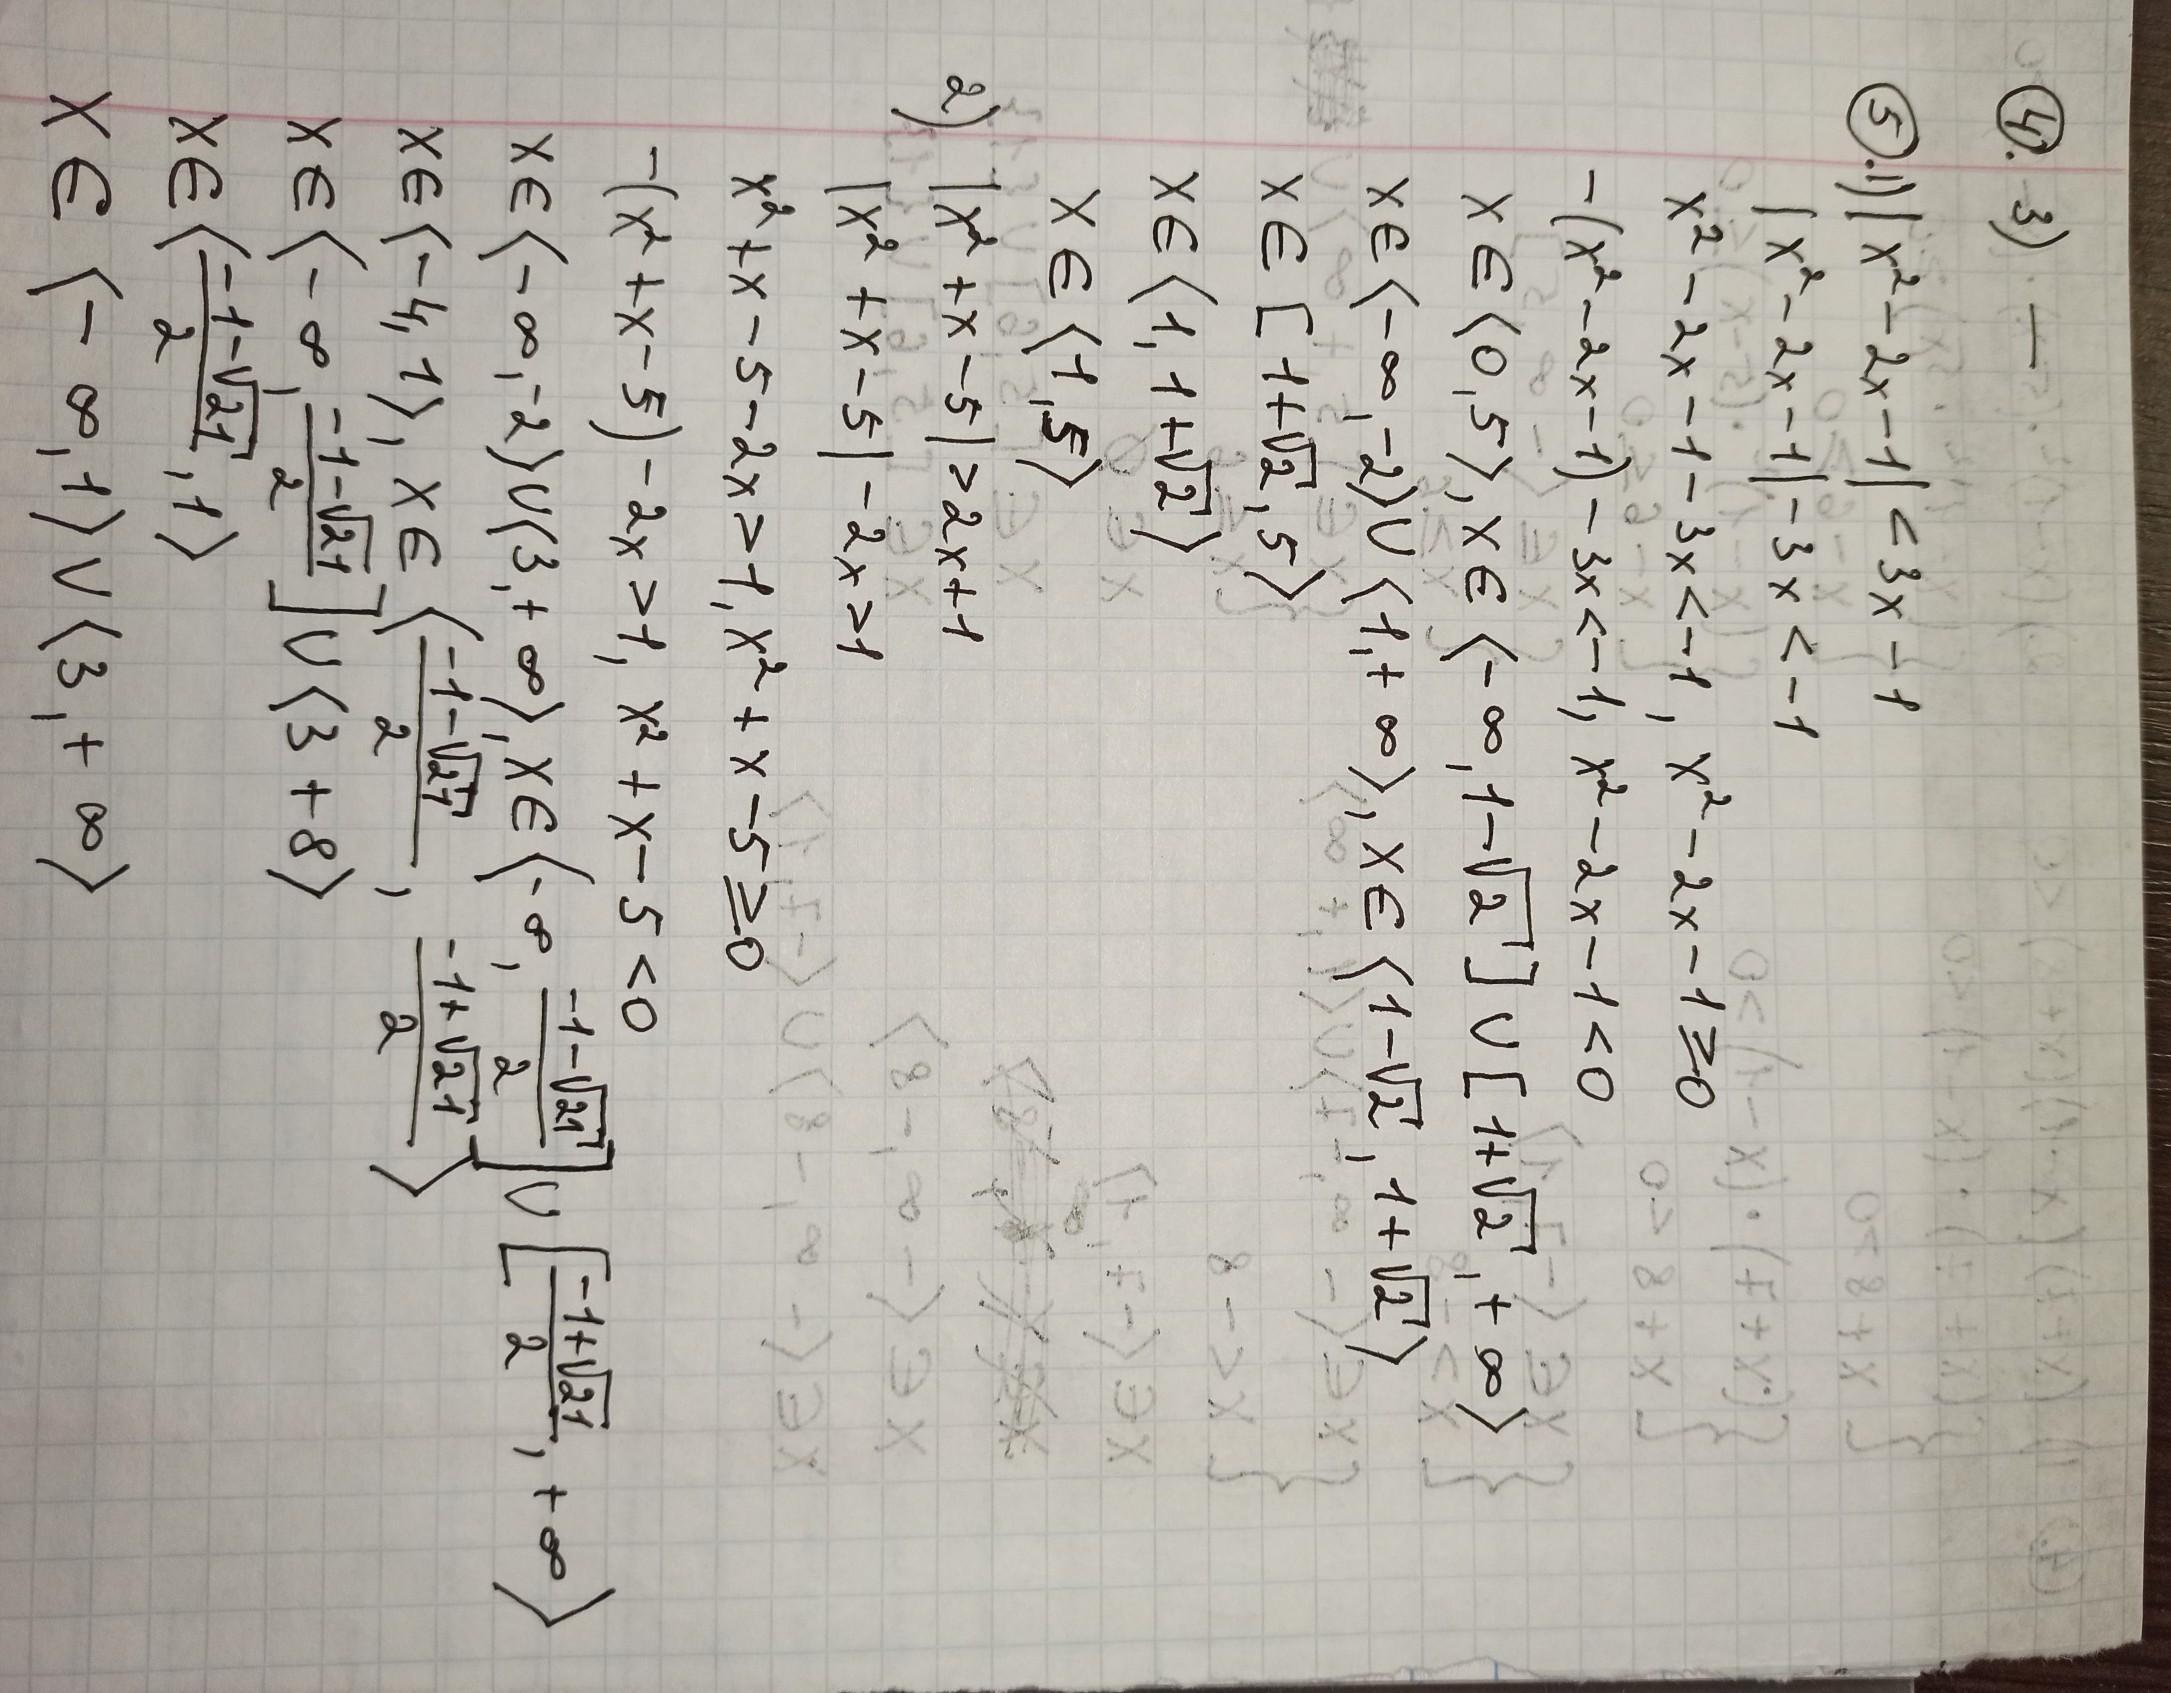 ④. 3) —
⑤. 1) |x² - 2x - 1| < 3x - 1
|x² - 2x - 1| - 3x < -1
x² - 2x - 1 - 3x < -1, x² - 2x - 1 ≥ 0
-(x² - 2x - 1) - 3x < -1, x² - 2x - 1 < 0
x ∈ ⟨0, 5⟩, x ∈ ⟨-∞, 1-√2] ∪ [1+√2, +∞⟩
x ∈ ⟨-∞, -2⟩ ∪ ⟨1, +∞⟩, x ∈ ⟨1-√2, 1+√2⟩
x ∈ [1+√2, 5⟩
x ∈ ⟨1, 1+√2⟩
x ∈ ⟨1, 5⟩
2) |x² + x - 5| > 2x + 1
|x² + x - 5| - 2x > 1
x² + x - 5 - 2x > 1, x² + x - 5 ≥ 0
-(x² + x - 5) - 2x > 1, x² + x - 5 < 0
x ∈ ⟨-∞, -2⟩ ∪ ⟨3, +∞⟩, x ∈ ⟨-∞, (-1-√21)/2] ∪ [(-1+√21)/2, +∞⟩
x ∈ ⟨-4, 1⟩, x ∈ ⟨(-1-√21)/2, (-1+√21)/2⟩
x ∈ ⟨-∞, (-1-√21)/2] ∪ ⟨3 + 8⟩
x ∈ ⟨(-1-√21)/2, 1⟩
x ∈ ⟨-∞, 1⟩ ∪ ⟨3, +∞⟩